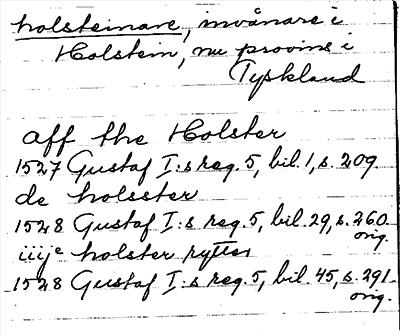 holsteinare, invånare i
Holstein, nu provins i
Tyskland
aff the Holster
1527 Gustaf I:s reg. 5, bil. 1, s. 209.
de holsster
1528 Gustaf I:s reg. 5, bil. 29, s. 260
orig.
iiijc holster rytter
1528 Gustaf I:s reg. 5, bil. 45, s. 291
orig.